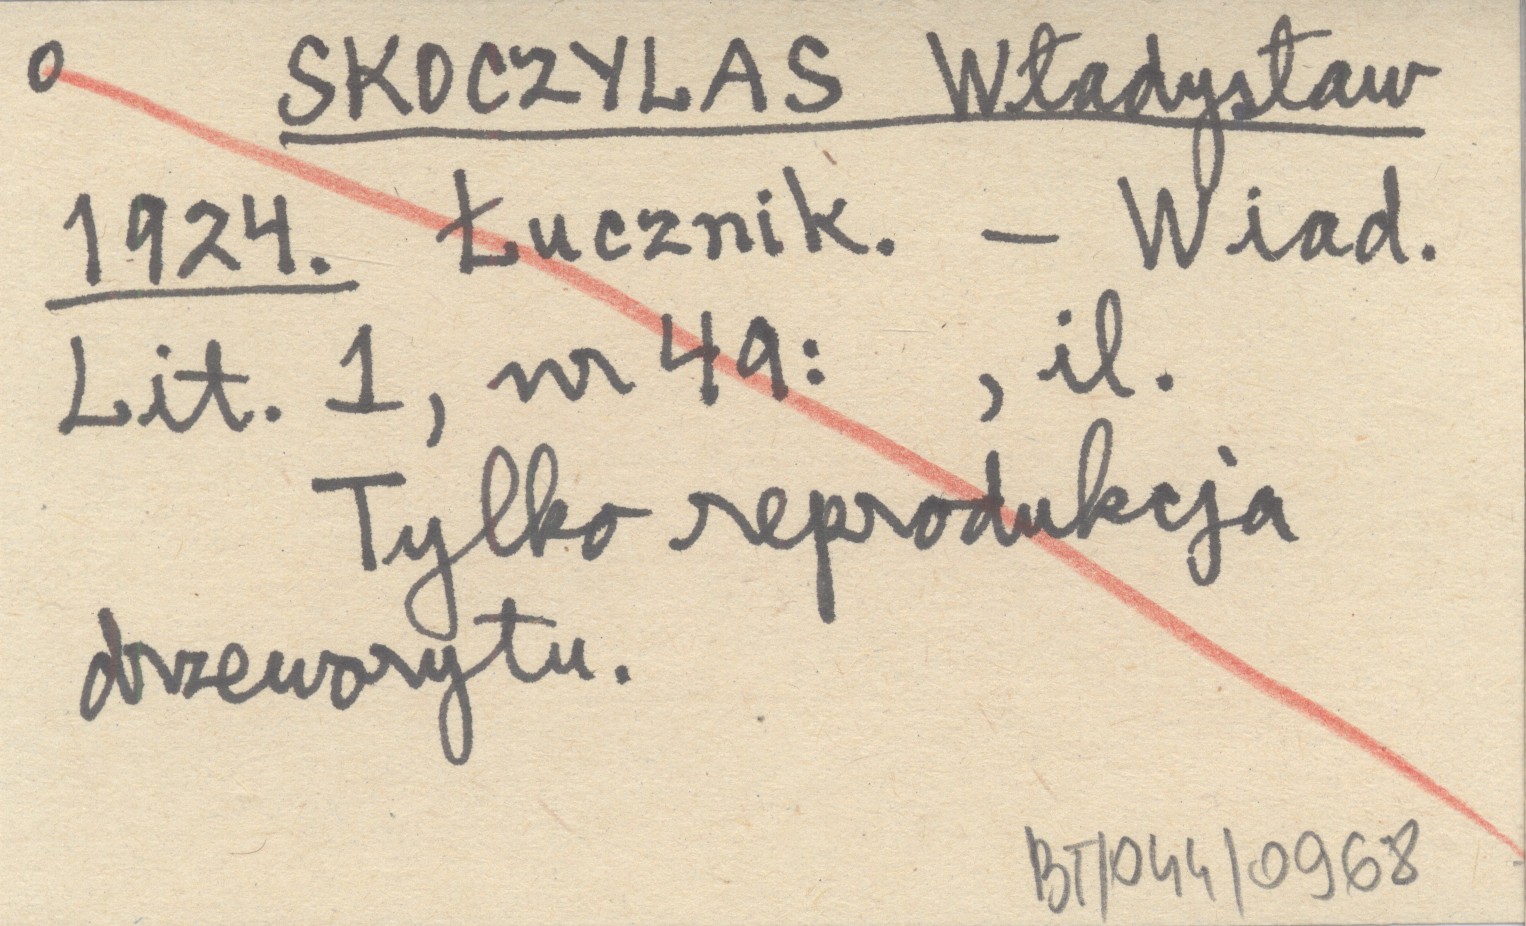 o SKOCZYLAS Władysław
1924. Łucznik. — Wiad.
Lit. 1, nr 49: , il.
Tylko reprodukcja
drzeworytu.
BT/044/0968